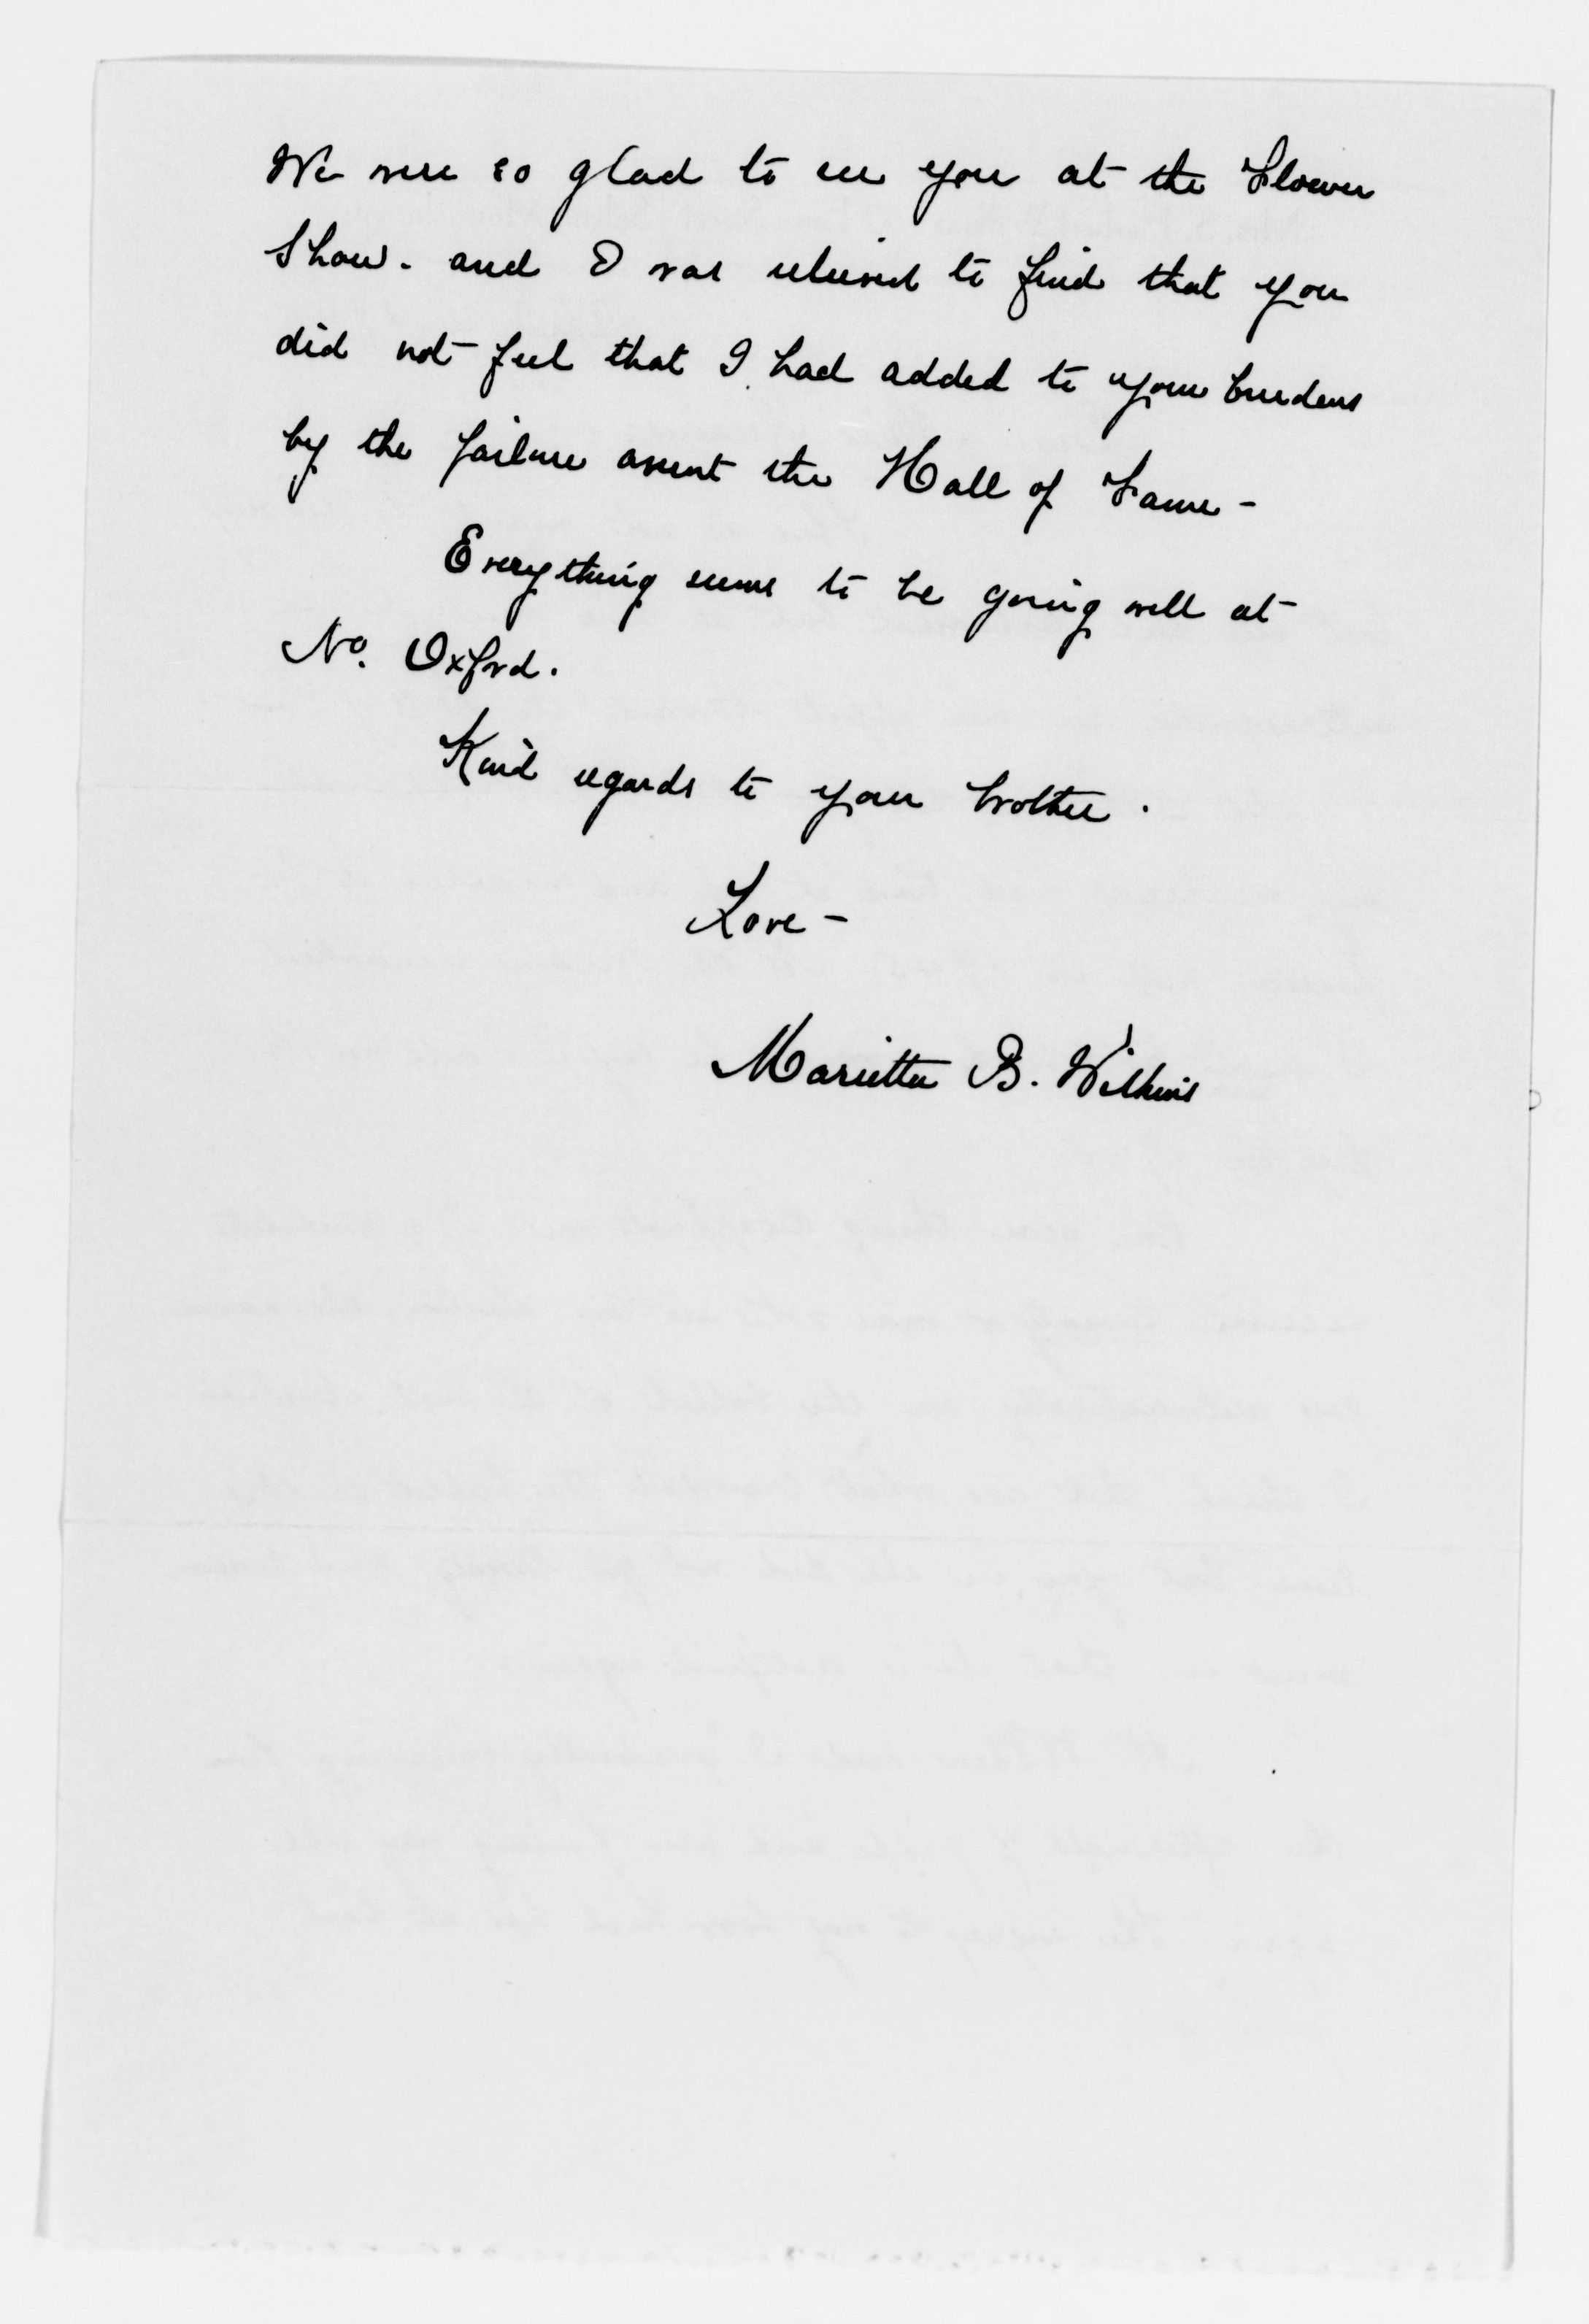 We were so glad to see you at the Flower
Show. and I was relieved to find that you
did not feel that I had added to your burdens
by the failure anent the Hall of Fame -
Everything seems to be going well at
No. Oxford.
Kind regards to your brother.
Love -
Marietta B. Wilkins